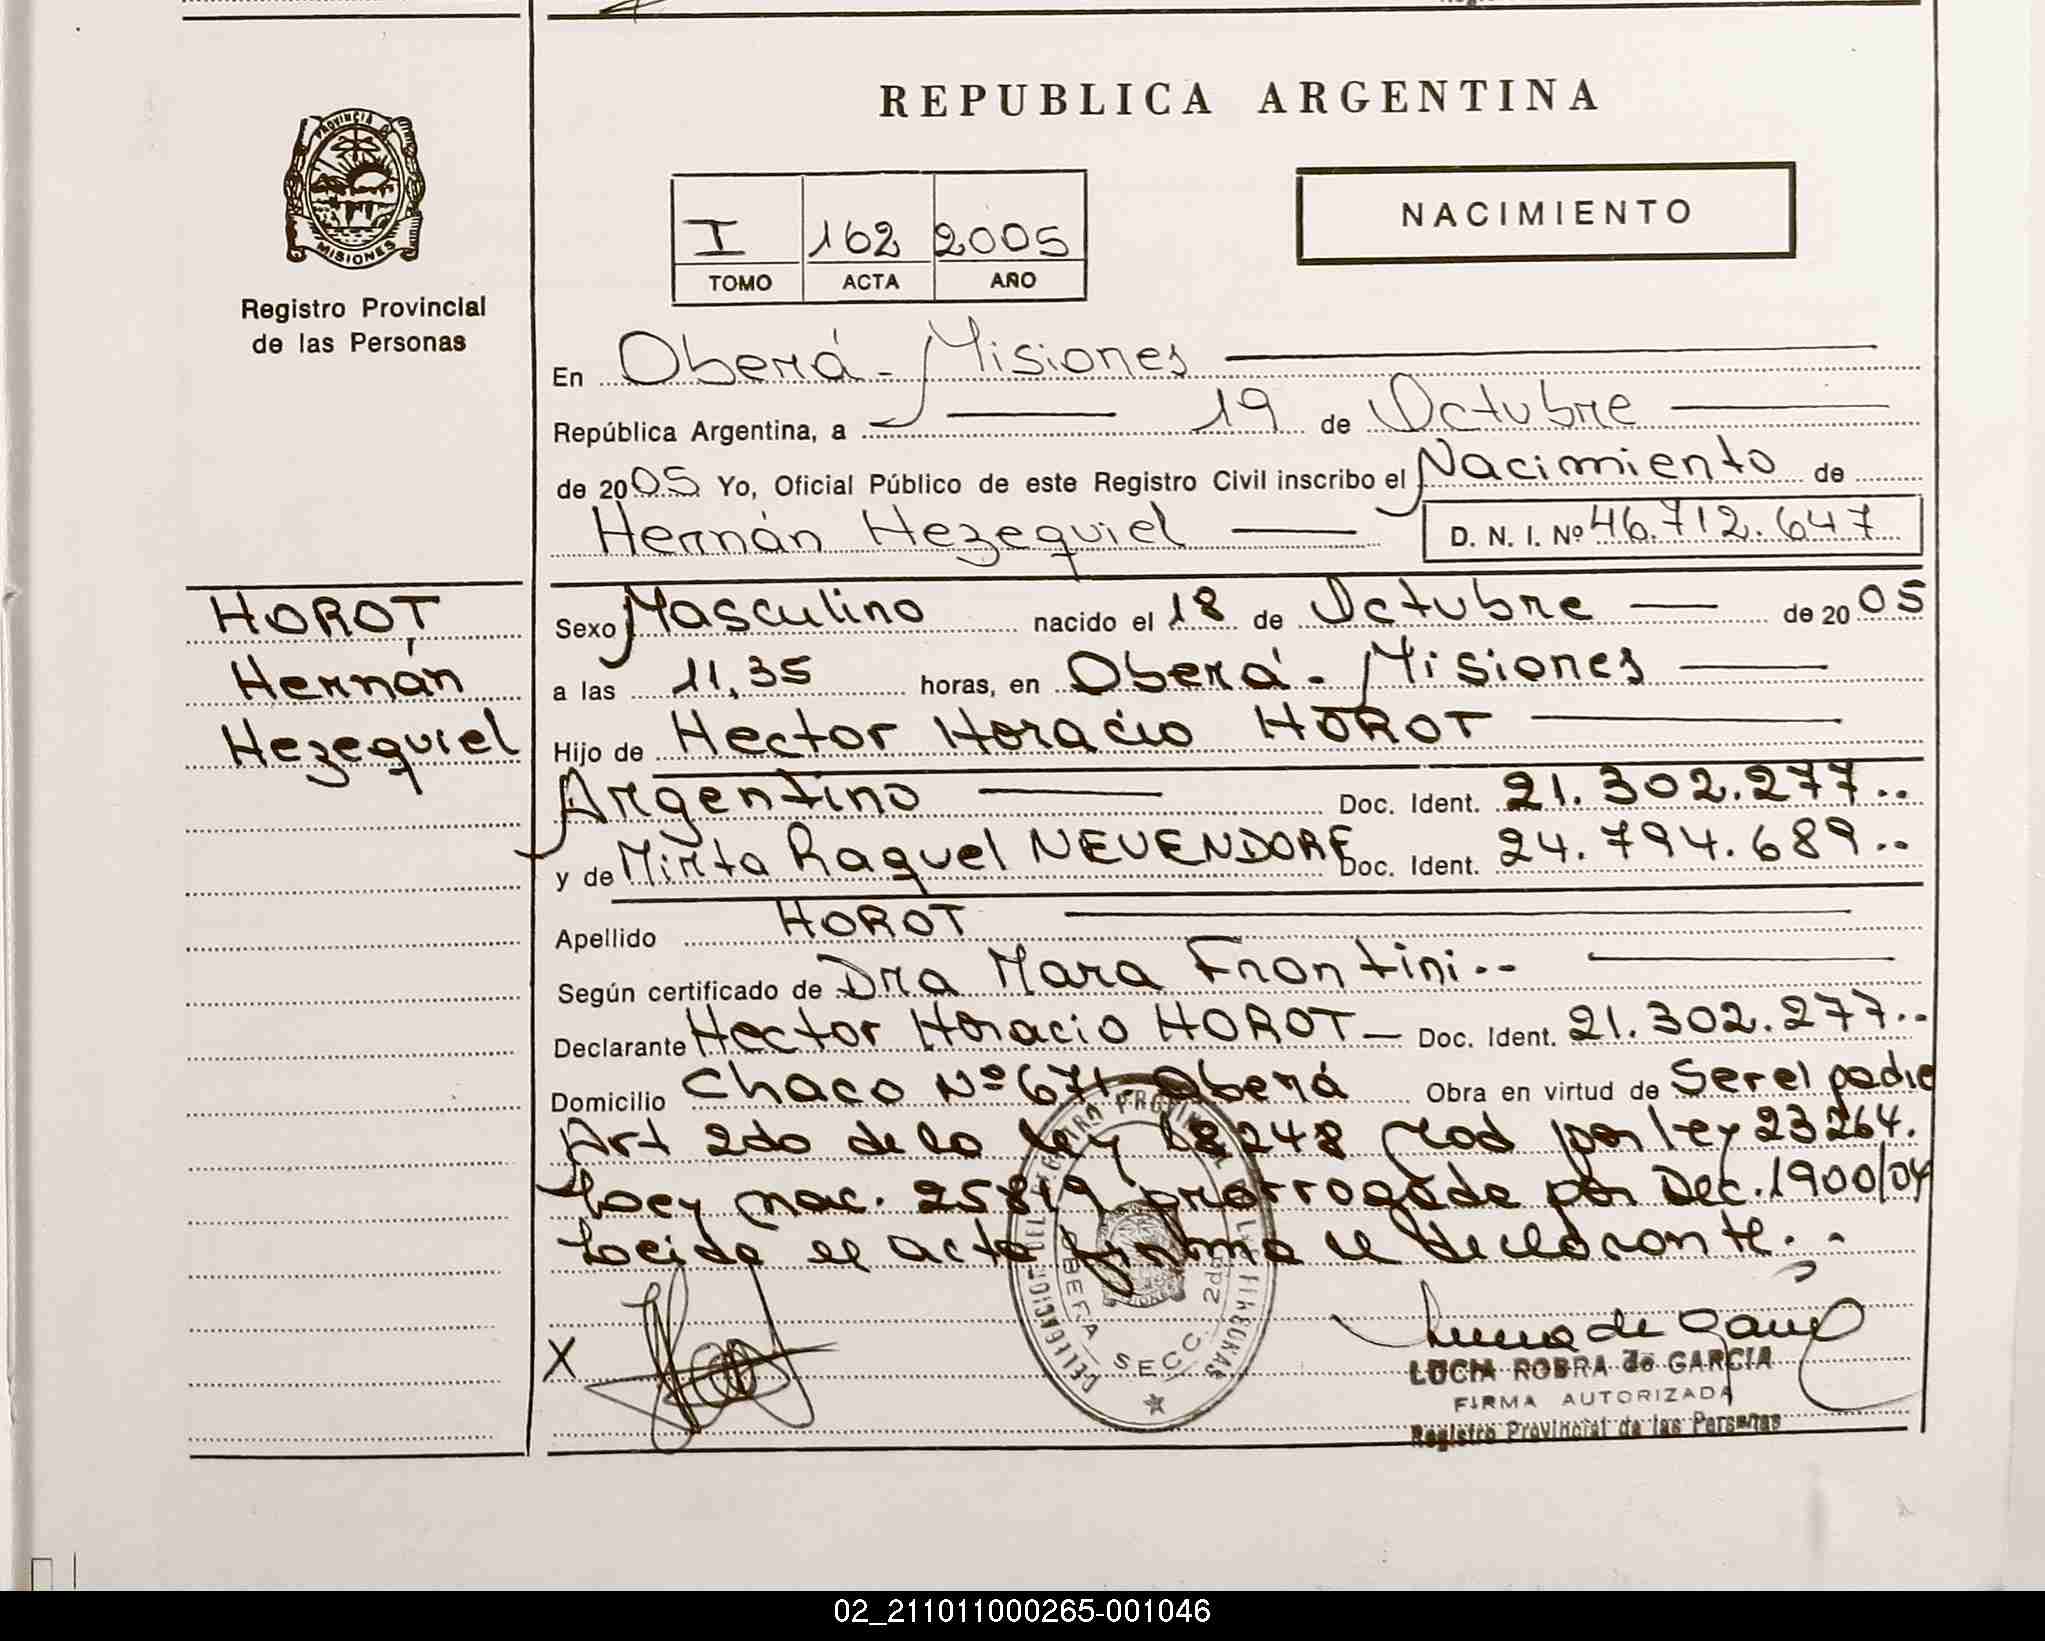 REPUBLICA ARGENTINA
PROVINCIA DE
MISIONES
Registro Provincial
de las Personas
I 162 2005
TOMO ACTA AÑO
NACIMIENTO
En Oberá - Misiones
República Argentina, a 19 de Octubre
de 2005 Yo, Oficial Público de este Registro Civil inscribo el Nacimiento de
Hernán Hezequiel D. N. I. Nº 46.712.647
HOROT
Hernán
Hezequiel
Sexo Masculino nacido el 18 de Octubre de 2005
a las 11,35 horas, en Oberá - Misiones
Hijo de Hector Horacio HOROT
Argentino Doc. Ident. 21.302.277..
y de Mirta Raquel NEUENDORF Doc. Ident. 24.794.689..
Apellido HOROT
Según certificado de Dra Mara Frontini..
Declarante Hector Horacio HOROT - Doc. Ident. 21.302.277..
Domicilio Chaco Nº 671 - Oberá Obra en virtud de Ser el padre
Art 2do de la ley 18248 Mod por ley 23264.
Ley nac. 25819 prorrogada por Dec. 1900/04
Leida el acta firma el declarante..
X
SECC. 2da
LUCIA ROBRA de GARCIA
FIRMA AUTORIZADA
Registro Provincial de las Personas
02_211011000265-001046